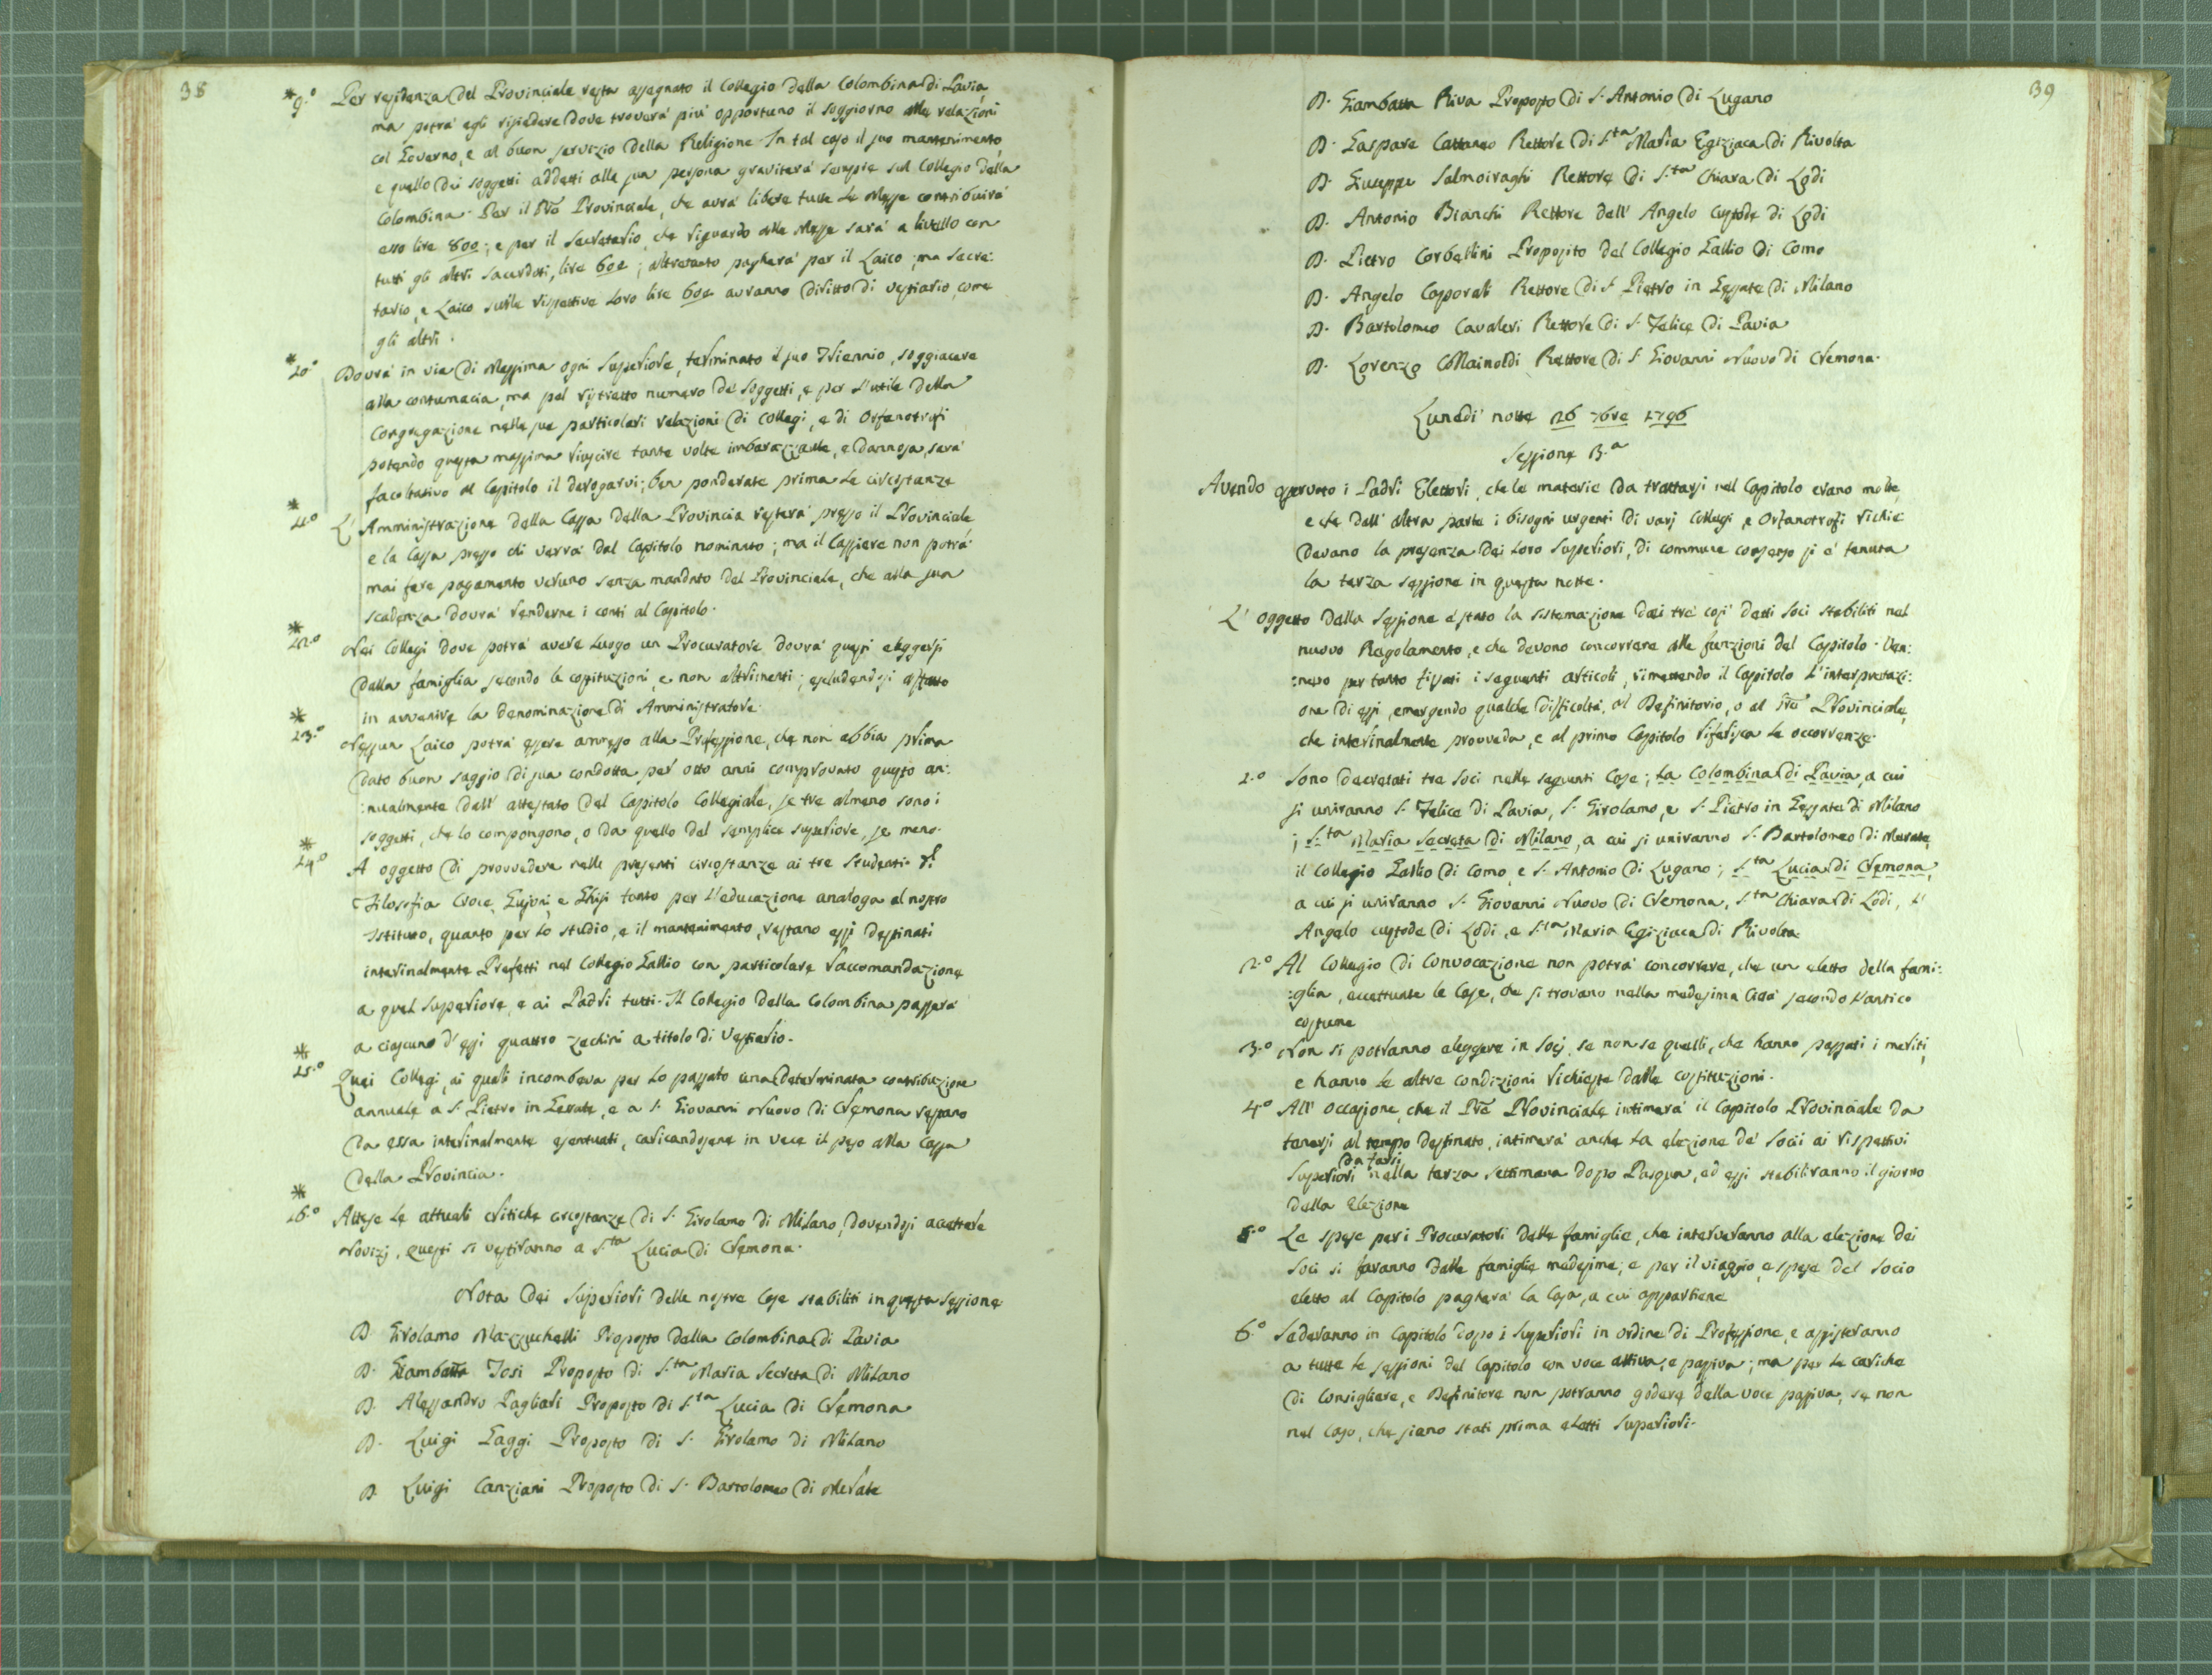 38
* 9.° Per residenza del Provinciale resta assegnato il Collegio della Colombina di Pavia,
ma potrà egli risiedere dove troverà più opportuno il soggiorno alle relazioni
col Governo, e al buon servizio della Religione. In tal caso il suo mantenimento,
e quello dei soggetti addetti alla sua persona graviterà sempre sul Collegio della
Colombina. Per il Pre Provinciale, che avrà libere tutte le Messe contribuirà
esso lire 800; e per il Secretario, che riguardo alle Messe sarà a livello con
tutti gli altri Sacerdoti, lire 600; altrettanto pagherà per il Laico; ma Secre:
tario, e Laico sulle rispettive loro lire 600 avranno diritto di vestiario, come
gli altri.
* 10.° Dovrà in via di Massima ogni Superiore, terminato il suo Triennio, soggiacere
alla contumacia, ma pel ristretto numero de' Soggetti, e per l'utile della
Congregazione nelle sue particolari relazioni di Collegi, e di Orfanotrofi
potendo questa massima riuscire tante volte imbarazzante, e dannosa, sarà
facoltativo al Capitolo il derogarvi; ben ponderate prima le circostanze
* 11.° L'Amministrazione della Cassa della Provincia resterà presso il Provinciale,
e la Cassa presso chi verrà dal Capitolo nominato; ma il Cassiere non potrà
mai fare pagamento veruno senza mandato del Provinciale, che alla sua
scadenza dovrà renderne i conti al Capitolo.
* 12.° Nei Collegi dove potrà avere luogo un Procuratore dovrà questi eleggersi
dalla famiglia secondo le costituzioni, e non altrimenti; escludendosi affatto
in avvenire la denominazione di Amministratore.
* 13.° Nessun Laico potrà essere ammesso alla Professione, che non abbia prima
dato buon saggio di sua condotta per otto anni comprovato questo an:
:nualmente dall' attestato del Capitolo Collegiale, se tre almeno sono i
soggetti, che lo compongono, o da quello del semplice superiore, se meno.
* 14.° A oggetto di provvedere nelle presenti circostanze ai tre Studenti di
Filosofia Croce, e Ghisi tanto per l'educazione analoga al nostro
Istituto, quanto per lo studio, e il mantenimento, restano essi destinati
interinalmente Prefetti nel Collegio Gallio con particolare raccomandazione
a quel Superiore, e ai Padri tutti. Il Collegio della Colombina passerà
a ciascuno d'essi quattro zechini a titolo di Vestiario.
* 15.° Quei Collegi, ai quali incombeva per lo passato una determinata contribuzione
annuale a S. Pietro in Gessate, e a S. Giovanni Nuovo di Cremona restano
da essa interinalmente esentuati, caricandosene in vece il peso alla Cassa
della Provincia.
* 16.° Attese le attuali critiche circostanze di S. Girolamo di Milano, dovendosi accettare
Novizj, questi si vestiranno a S.ta Lucia di Cremona.
Nota dei Superiori delle nostre Case stabiliti in questa Sessione
D. Girolamo Mazzucchelli Proposto della Colombina di Pavia
D. Giambatta Tosi Proposto di S.ta Maria Secreta di Milano
D. Alessandro Pagliari Proposto di S.ta Lucia di Cremona
D. Luigi Gaggi Proposto di S. Girolamo di Milano
D. Luigi Canziani Proposto di S. Bartolomeo di Merate
39
D. Giambatta Riva Proposto di S. Antonio di Lugano
D. Gaspare Cattaneo Rettore di S.ta Maria Egiziaca di Rivolta
D. Giuseppe Salmoiraghi Rettore di S.ta Chiara di Lodi
D. Antonio Bianchi Rettore dell' Angelo Custode di Lodi
D. Pietro Corbellini Proposito del Collegio Gallio di Como
D. Angelo Casporali Rettore di S. Pietro in Gessate di Milano
D. Bartolomeo Cavaleri Rettore di S. Felice di Pavia
D. Lorenzo Mainoldi Rettore di S. Giovanni Nuovo di Cremona.
Lunedì notte 26 7bre 1796
Sessione 3.a
Avendo osservato i Padri Elettori, che le materie da trattarsi nel Capitolo erano molte,
e che dall' altra parte i bisogni urgenti di varj Collegi e Orfanotrofi richie
devano la presenza dei loro Superiori, di commune consenso si è tenuta
la terza sessione in questa notte.
L' oggetto della Sessione è stato la sistemazione dei tre così detti Soci stabiliti nel
nuovo Regolamento, e che devono concorrere alle funzioni del Capitolo. Ven:
:nero per tanto fissati i seguenti articoli, rimettendo il Capitolo l'interpretazi:
one di essi, emergendo qualche difficoltà, al Definitorio, o al Pre Provinciale,
che interinalmente provveda, e al primo Capitolo riferisca le occorrenze.
1.° Sono decretati tre Soci nelle seguenti Case; la Colombina di Pavia, a cui
si uniranno S. Felice di Pavia, S. Girolamo, e S. Pietro in Gessate di Milano
; S.ta Maria Secreta di Milano, a cui si uniranno S. Bartolomeo di Merate,
il Collegio Gallio di Como, e S. Antonio di Lugano; S.ta Lucia di Cremona,
a cui si uniranno S. Giovanni Nuovo di Cremona, S.ta Chiara di Lodi, l'
Angelo custode di Lodi, e S.ta Maria Egiziaca di Rivolta.
2.° Al Collegio di Convocazione non potrà concorrere, che un eletto della fami:
:glia, eccettuate le Case, che si trovano nella medesima Città secondo l'antico
costume
3.° Non si potranno eleggere in Socj se non se quelli, che hanno passati i meriti,
e hanno le altre condizioni richieste dalle costituzioni.
4.° All' occasione, che il Pre Provinciale intimerà il Capitolo Provinciale da
tenersi al tempo destinato, intimerà anche la elezione de' Socii ai rispettivi
Superiori da farsi nella terza settimana dopo Pasqua, ed essi stabiliranno il giorno
della elezione
5.° Le spese per i Procuratori delle famiglie, che interverranno alla elezione dei
Soci si faranno dalle famiglie medesime; e per il viaggio, e spese del Socio
eletto al Capitolo pagherà la Casa, a cui appartiene
6.° Sederanno in Capitolo dopo i Superiori in ordine di Professione, e assisteranno
a tutte le sessioni del Capitolo con voce attiva, e passiva; ma per le cariche
di Consigliere, e Definitore non potranno godere della voce passiva, se non
nel caso, che siano stati prima eletti Superiori.